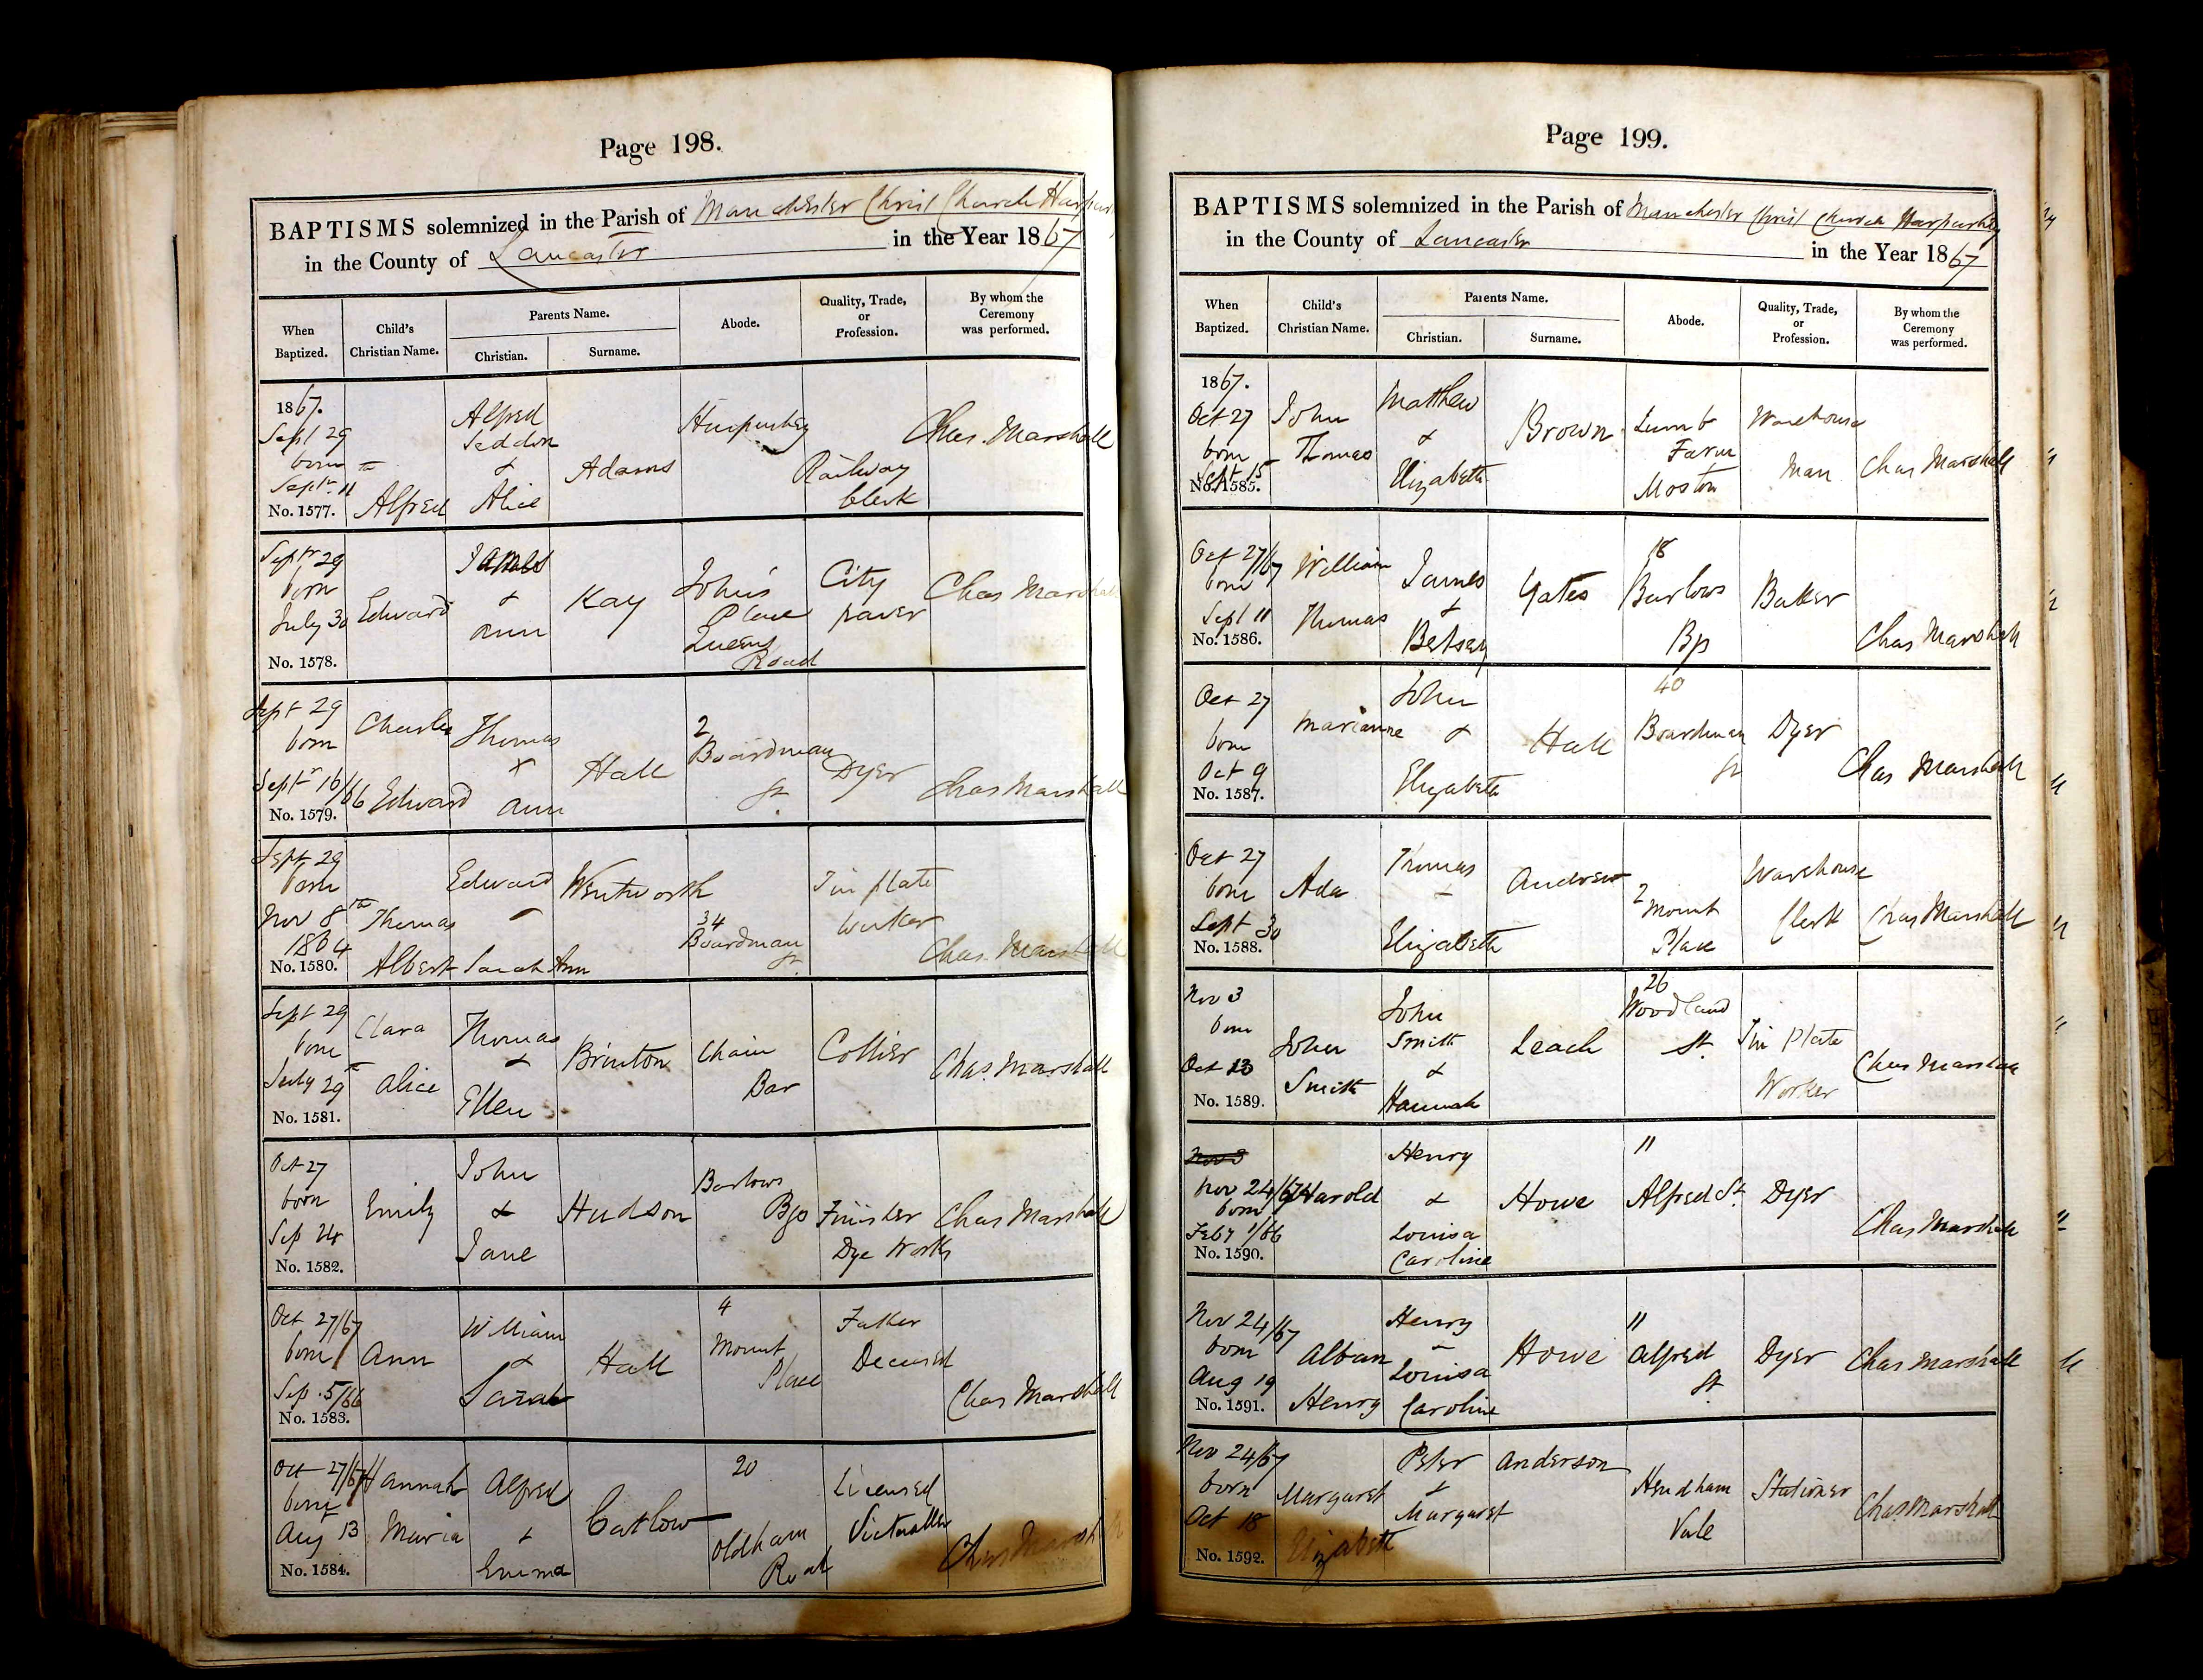 Page 198.
BAPTISMS solemnized in the Parish of Manchester Christ Church Harpurhey
in the County of Lancaster in the Year 1867
When Baptized. Child's Christian Name. Parents Name. Christian. Surname. Abode. Quality, Trade, or Profession. By whom the Ceremony was performed.
1867. Sept 29 born Septr. 11th No. 1577. Alfred Alfred Seddon & Alice Adams Harpurhey Railway Clerk Chas. Marshall
Septr 29 born July 30 No. 1578. Edward James & Ann Kay John's Place Queens Road City paver Chas Marshall
Sept 29 born Septr 16/66 No. 1579. Charles Edward Thomas & Ann Hall 2 Boardman St. Dyer Chas Marshall
Sept 29 born Nov 8th 1864 No. 1580. Thomas Albert Edward Sarah Ann Wentworth 34 Boardman St. Tin plate worker Chas. Marshall
Sept 29 born July 29th No. 1581. Clara Alice Thomas & Ellen Brinton Chain Bar Collier Chas. Marshall
Oct 27 born Sep 24 No. 1582. Emily John & Jane Hudson Barlows Bgs Finisher Dye Works Chas Marshall
Oct 27/67 born Sep. 5/66 No. 1583. Ann William & Sarah Hall 4 Mount Place Father Deceased Chas Marshall
Oct 27/67 born Aug 13 No. 1584. Hannah Maria Alfred & Emma Catlow 20 Oldham Road Licensed Victualler Chas Marshall
Page 199.
BAPTISMS solemnized in the Parish of Manchester Christ Church Harpurhey
in the County of Lancaster in the Year 1867
When Baptized. Child's Christian Name. Parents Name. Christian. Surname. Abode. Quality, Trade, or Profession. By whom the Ceremony was performed.
1867. Oct 27 born Sept 15 No. 1585. John Thomas Matthew & Elizabeth Brown Lumb Farm Moston Warehouse Man Chas Marshall
Oct 27/67 born Sept 11 No. 1586. William Thomas James & Betsey Yates 18 Barlows Bgs Baker Chas Marshall
Oct 27 born Oct 9 No. 1587. Marianne John & Elizabeth Hall 40 Boardman St Dyer Chas Marshall
Oct 27 born Sept 30 No. 1588. Ada Thomas & Elizabeth Andrew 2 Mount Place Warehouse Clerk Chas Marshall
Nov 3 born Oct 13 No. 1589. John Smith John Smith & Hannah Leach 26 Woodland St. Tin Plate Worker Chas Marshall
Nov 3 Nov 24/67 born Feby 1/66 No. 1590. Harold Henry & Louisa Caroline Howe " Alfred St. Dyer Chas Marshall
Nov 24/67 born Aug 19 No. 1591. Alban Henry Henry Louisa Caroline Howe " Alfred St. Dyer Chas Marshall
Nov 24/67 born Oct 18 No. 1592. Margaret Elizabeth Peter & Margaret Anderson Hendham Vale Stationer Chas. Marshall